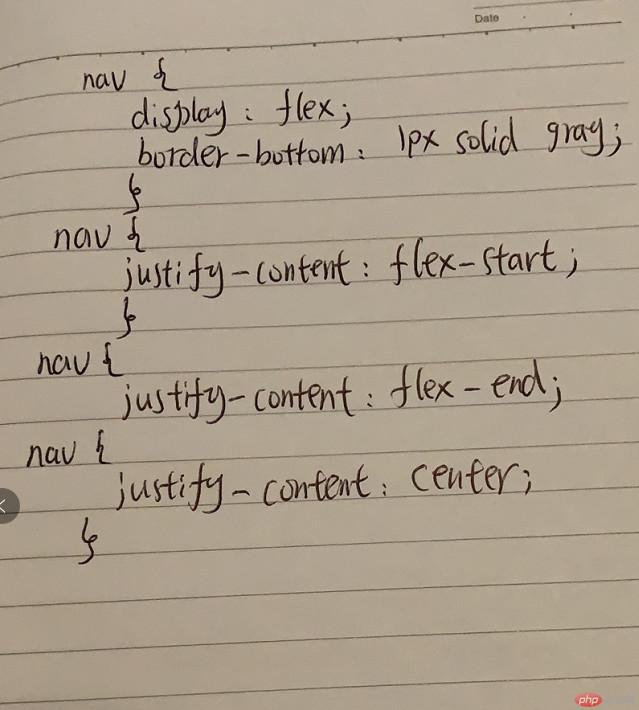 Date
nav {
display : flex;
border-bottom : 1px solid gray;
}
nav {
justify-content : flex-start;
}
nav {
justify-content : flex-end;
nav {
justify-content : center;
}
php